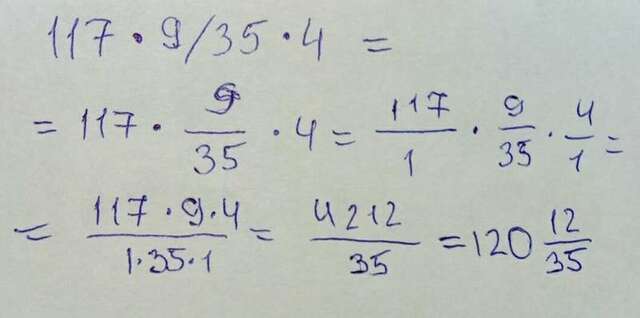 117 · 9/35 · 4 =
= 117 · 9/35 · 4 = 117/1 · 9/35 · 4/1 =
= 117·9·4/1·35·1 = 4212/35 = 120 12/35